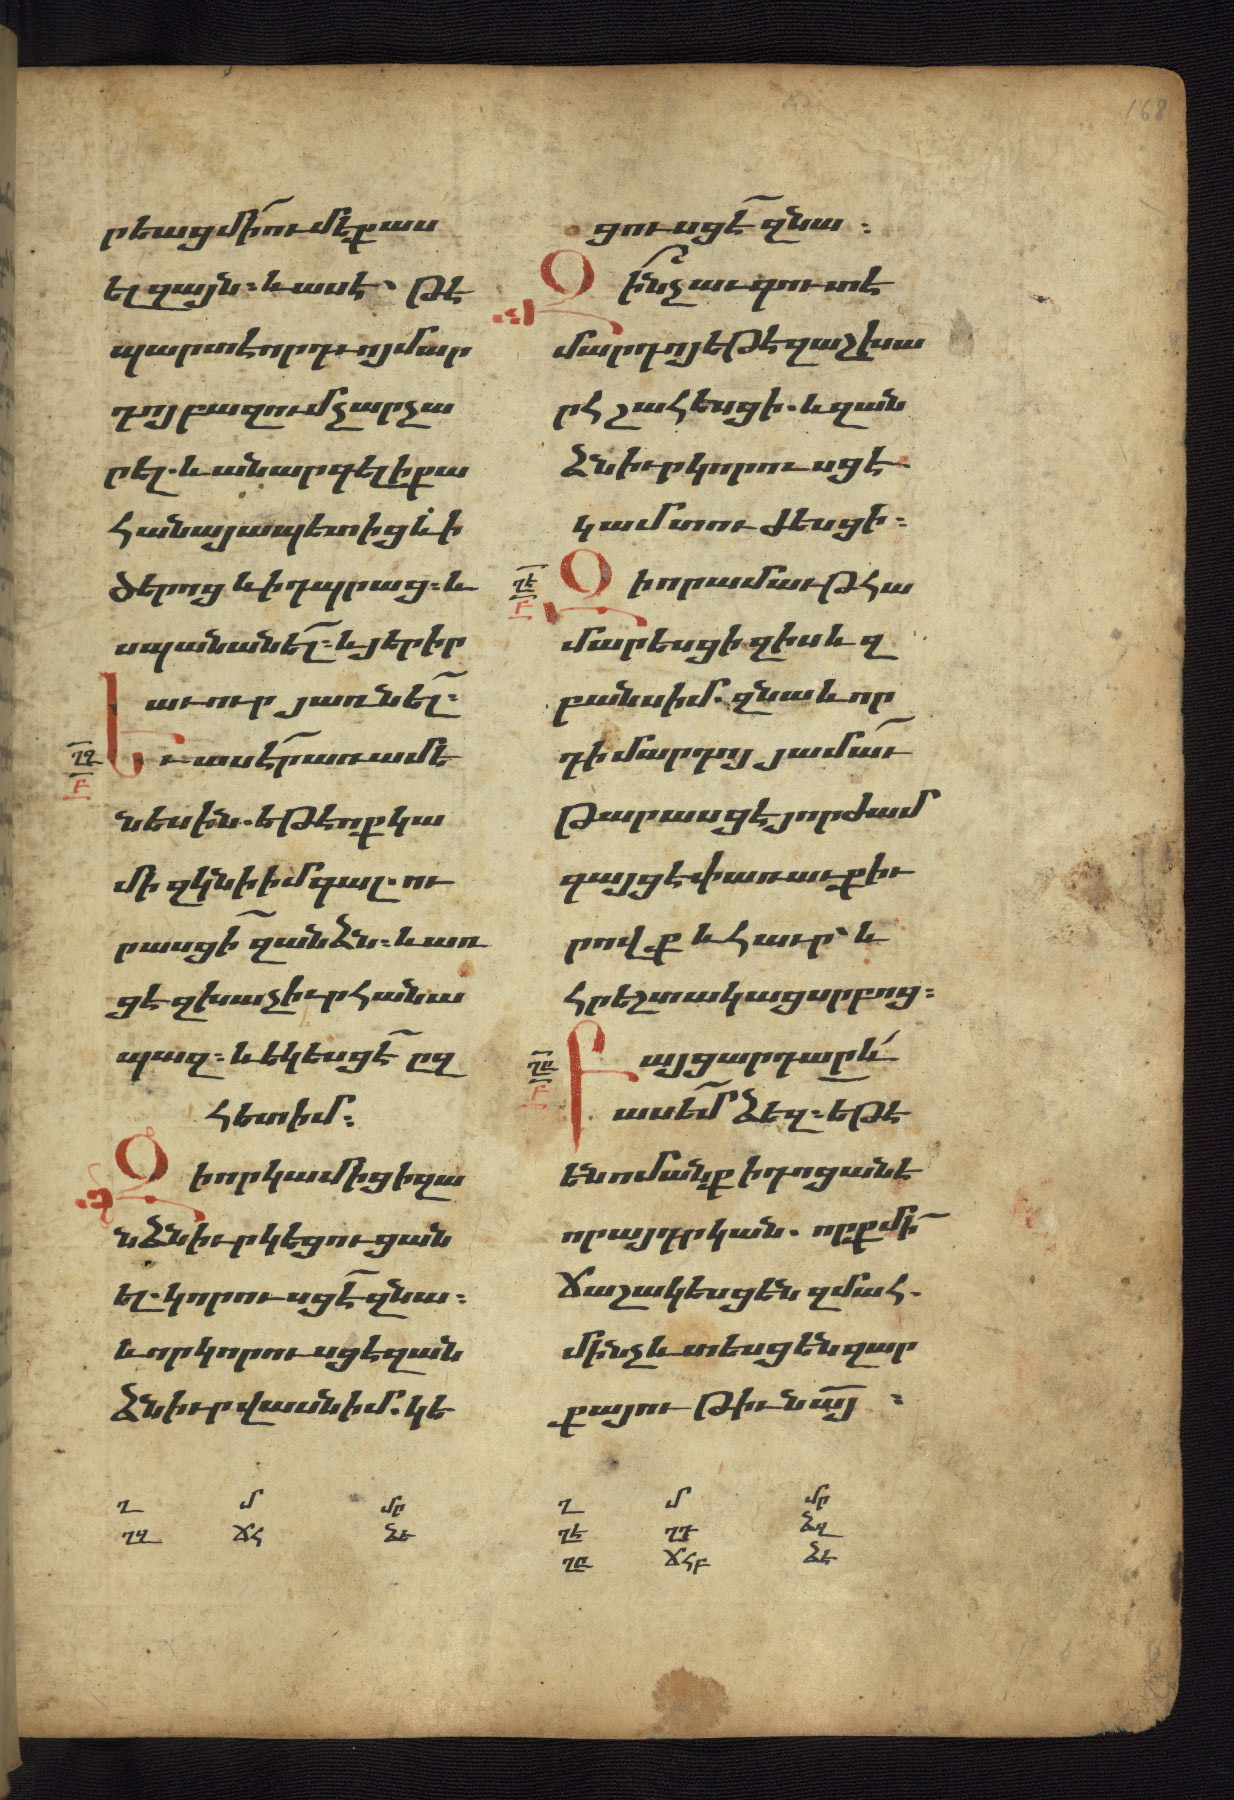 րեացմի՜ումեքաս
ելզայն։ևասէ՝ թէ
պարտէորդւոյմար
դոյբազումչարչա
րել.ևանարգելիքա
հանայապետիցևի
ծերոցևիդպրաց։և
սպանանել՜։ևյերիր
աւուր յառնել՜։
ղզ
բ
Եւասէ՜րառամե
նեսին.եթէոքկա
միզկնիիմգալ.ու
րասցի՜ զանձն։ևառ
ցէզխաչիւրհանա
պազ։ևեկեսցէ՜ ըզ
հետիմ։
Զիորկամիցիզա
նձնիւրկեցուցան
ել.կորուսցէ՜զնա։
ևորկորուսցէզան
ձնիւրվասնիմ.կե
ղ մ մր
ղզ ճհ ձե
168
ցուսցէ՜ զնա։
Զի՜նչաւգուտէ
մարդոյեթէզաշխա
րհ շահեսցի.ևզան
ձնիւրկորուսցէ.
կամտուժեսցի։
ղէ
բ
Զիորամաւթհա
մարեսցիզիսևզ
բանսիմ.զնաևոր
դիմարդոյ յամա՜ւ
թարասցէյորժամ
գայցէփառաւքիւ
րովք և հաւր՝ և
հրեշտակացսրբոց։
ղը
բ
Բայցարդարև՛
ասե՜մ ձեզ։եթէ
ենոմանք իդոցանէ
որայդրկան. որքմի՜
ճաշակեսցեն զմահ.
մինչևտեսցենզար
քայութիւնա՜յ ։
ղ մ մր
ղէ ղդ ձզ
ղը ճհբ ձէ